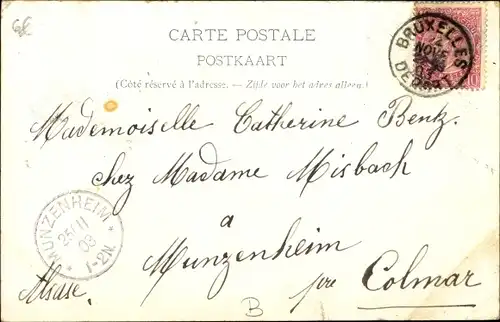 6€
CARTE POSTALE
POSTKAART
(Côté réservé à l'adresse. — Zijde voor het adres alleen.)
BRUXELLES
NOVE
DEPART
10
Mademoiselle Catherine Bentz
chez Madame Misbach
à
Munzenheim
Alsace.
pre Colmar
MUNZENHEIM
25/11
03
1-2N.
B